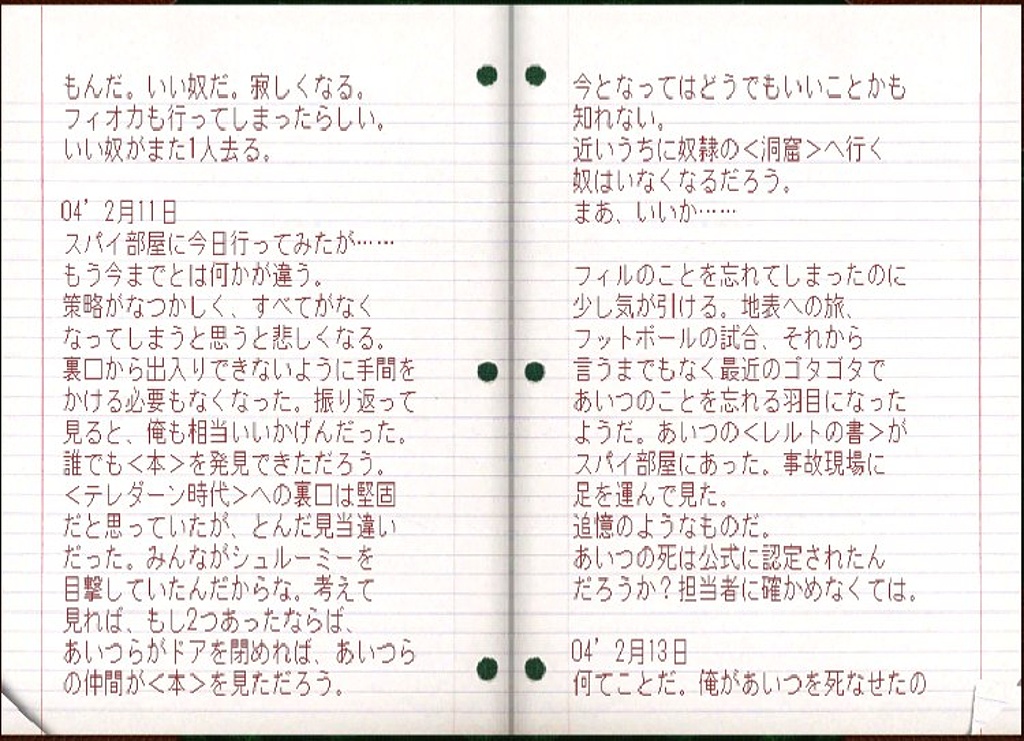 もんだ。いい奴だ。寂しくなる。
フィオカも行ってしまったらしい。
いい奴がまた1人去る。
04’ 2月11日
スパイ部屋に今日行ってみたが……
もう今までとは何かが違う。
策略がなつかしく、すべてがなく
なってしまうと思うと悲しくなる。
裏口から出入りできないように手間を
かける必要もなくなった。振り返って
見ると、俺も相当いいかげんだった。
誰でも<本>を発見できただろう。
<テレダーン時代>への裏口は堅固
だと思っていたが、とんだ見当違い
だった。みんながシュルーミーを
目撃していたんだからな。考えて
見れば、もし2つあったならば、
あいつらがドアを閉めれば、あいつら
の仲間が<本>を見ただろう。
今となってはどうでもいいことかも
知れない。
近いうちに奴隷の<洞窟>へ行く
奴はいなくなるだろう。
まあ、いいか……
フィルのことを忘れてしまったのに
少し気が引ける。地表への旅、
フットボールの試合、それから
言うまでもなく最近のゴタゴタで
あいつのことを忘れる羽目になった
ようだ。あいつの<レルトの書>が
スパイ部屋にあった。事故現場に
足を運んで見た。
追憶のようなものだ。
あいつの死は公式に認定されたん
だろうか？担当者に確かめなくては。
04’ 2月13日
何てことだ。俺があいつを死なせたの